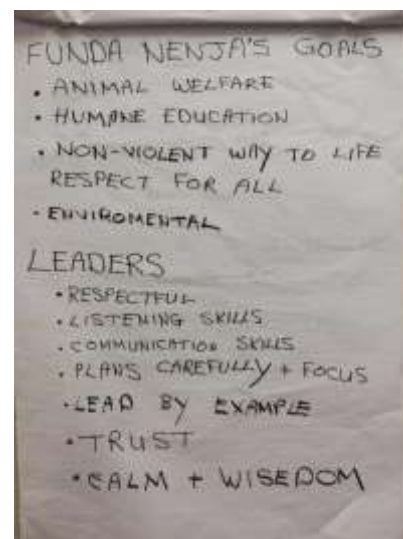 FUNDA NENJA'S GOALS
• ANIMAL WELFARE
• HUMANE EDUCATION
• NON-VIOLENT WAY TO LIFE
RESPECT FOR ALL
• ENVIROMENTAL
LEADERS
• RESPECTFUL
• LISTENING SKILLS
• COMMUNICATION SKILLS
• PLANS CAREFULLY + FOCUS
• LEAD BY EXAMPLE
• TRUST
• CALM + WISEDOM